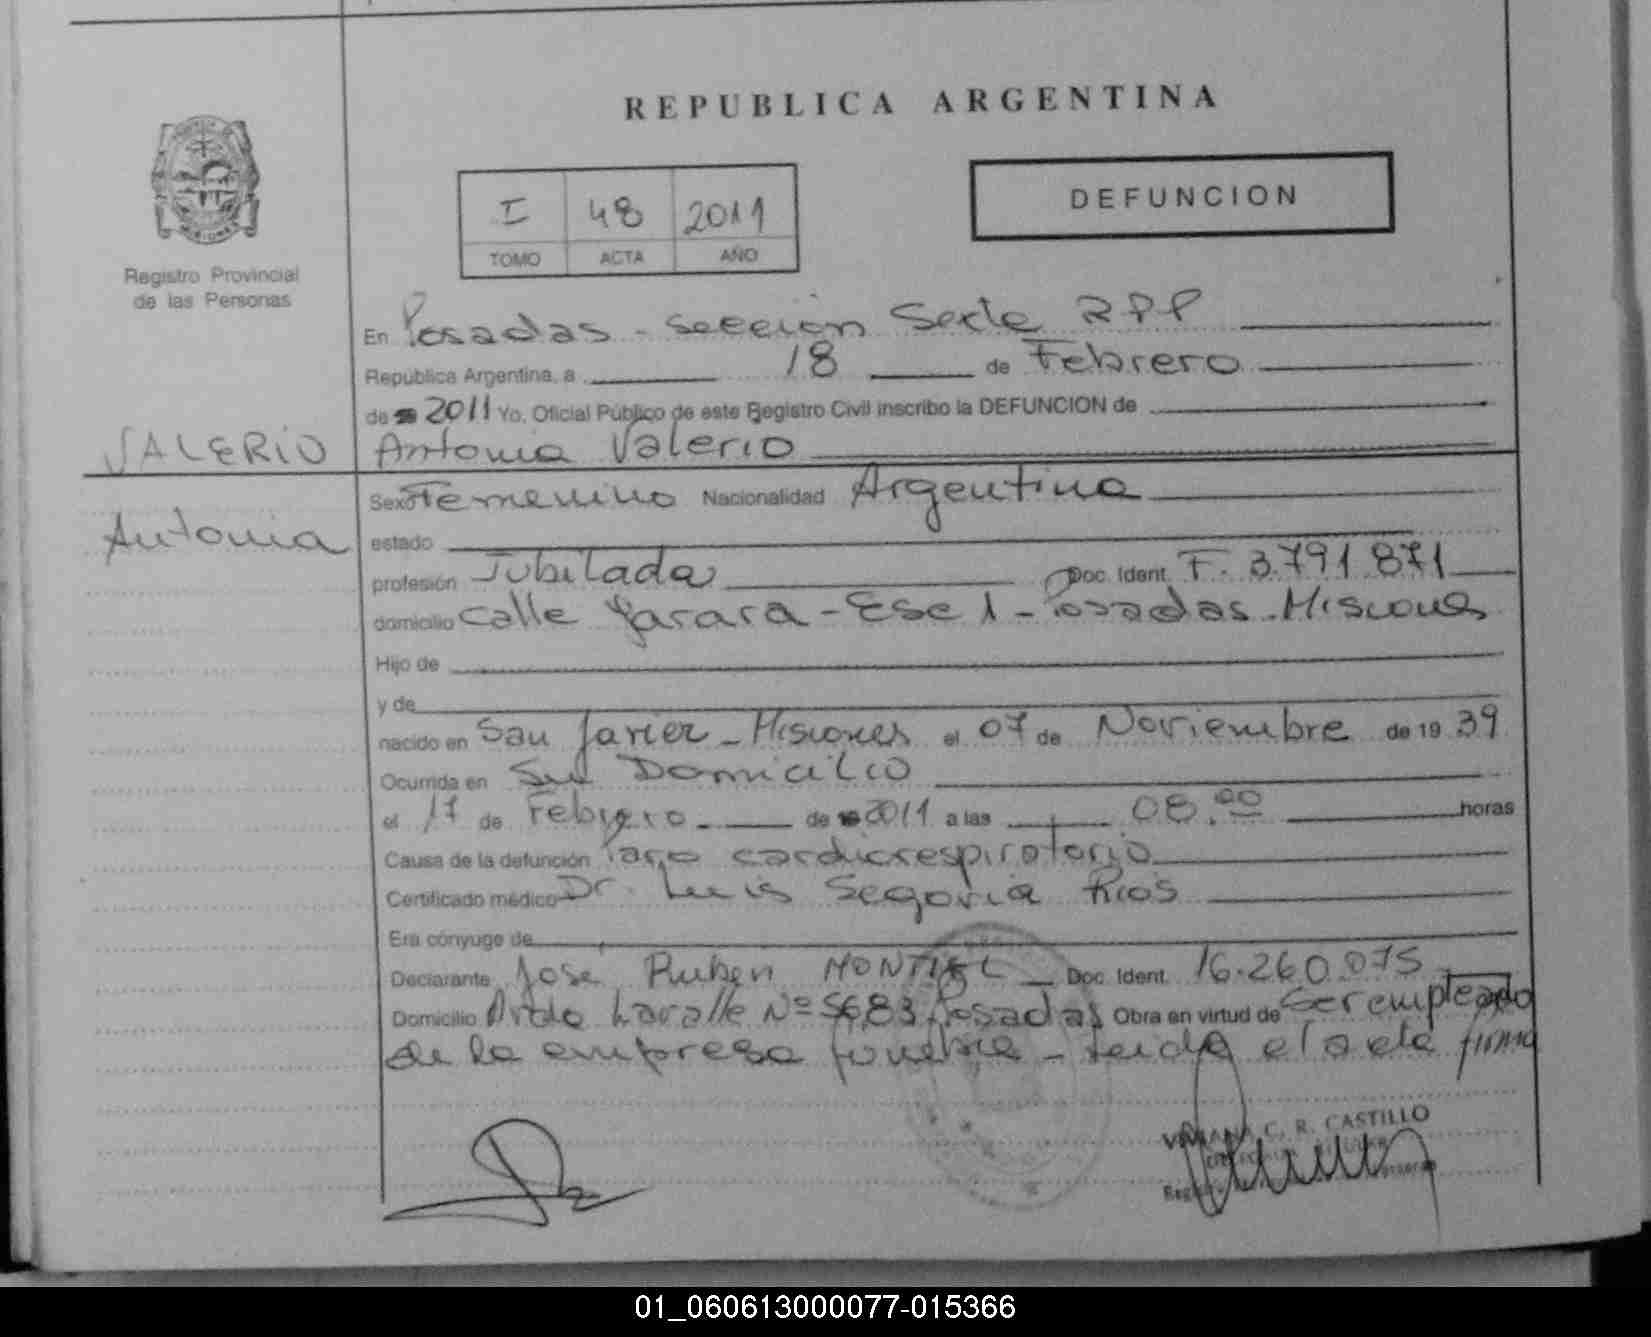 REPUBLICA ARGENTINA
DEFUNCION
I 48 2011
TOMO ACTA AÑO
Registro Provincial
de las Personas
En Posadas - Sección Sede RPP
República Argentina, a 18 de Febrero
de 2011 Yo, Oficial Público de este Registro Civil inscribo la DEFUNCION de
VALERIO
Antonia Valerio
Antonia
Sexo Femenino Nacionalidad Argentina
estado
profesión Jubilada Doc. Ident. F. 3.791.871
domicilio Calle Yarara - Esc 1 - Posadas. Misiones
Hijo de
y de
nacido en San Javier - Misiones el 07 de Noviembre de 19 39
Ocurrida en Su Domicilio
el 17 de Febrero de 2011 a las 08.00 horas
Causa de la defunción Paro cardiorespiratorio
Certificado médico Dr. Luis Segovia Rios
Era cónyuge de
Declarante Jose Ruben MONTIEL Doc. Ident. 16.260.075
Domicilio Avda Lavalle Nº 5683 Posadas Obra en virtud de Ser empleado
de la empresa funebre - leida el acta firma
C. R. CASTILLO
01_060613000077-015366